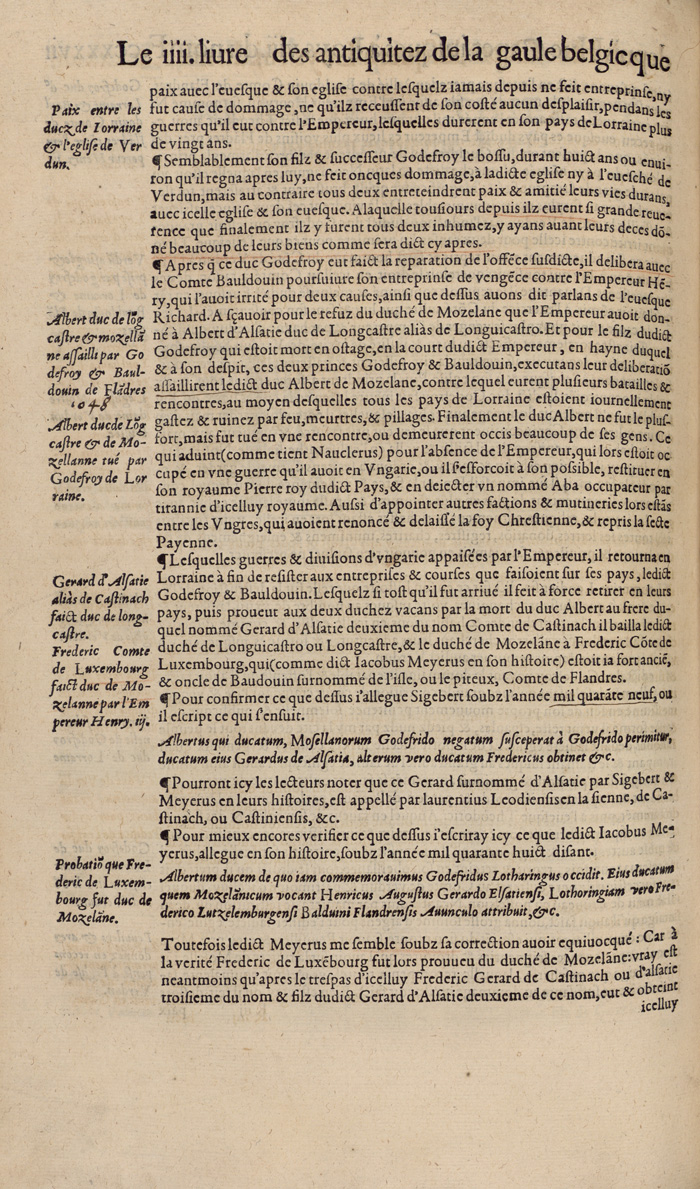 Le iiii. liure des antiquitez de la gaule belgicque
paix auec l'euesque & son eglise contre lesquelz iamais depuis ne feit entreprinse, ny
fut cause de dommage, ne qu'ilz receussent de son costé aucun desplaisir, pendans les
guerres qu'il eut contre l'Empereur, lesquelles durerent en son pays de Lorraine plus
de vingt ans.
Paix entre les
ducz de Lorraine
& l'eglise de Ver
dun.
¶ Semblablement son filz & successeur Godefroy le bossu, durant huict ans ou enui-
ron qu'il regna apres luy, ne feit oncques dommage, à ladicte eglise ny à l'euesché de
Verdun, mais au contraire tous deux entreteindrent paix & amitié leurs vies durans,
auec icelle eglise & son euesque. A laquelle tousiours depuis ilz eurent si grande reue-
rence que finalement ilz y furent tous deux inhumez, y ayans auant leurs deces dō-
né beaucoup de leurs biens comme sera dict cy apres.
¶ Apres q̄ ce duc Godefroy eut faict la reparation de l'offēce susdicte, il delibera auec
le Comte Bauldouin poursuiure son entreprinse de vengēce contre l'Empereur Hē-
ry, qui l'auoit irrité pour deux causes, ainsi que dessus auons dit parlans de l'euesque
Richard. A sçauoir pour le refuz du duché de Mozelane que l'Empereur auoit don-
né à Albert d'Alsatie duc de Longcastre aliàs de Longuicastro. Et pour le filz dudict
Godefroy qui estoit mort en ostage, en la court dudict Empereur, en hayne duquel
& à son despit, ces deux princes Godefroy & Bauldouin, executans leur deliberatiō
assaillirent ledict duc Albert de Mozelane, contre lequel eurent plusieurs batailles &
rencontres, au moyen desquelles tous les pays de Lorraine estoient iournellement
gastez & ruinez par feu, meurtres, & pillages. Finalement le duc Albert ne fut le plus-
fort, mais fut tué en vne rencontre, ou demeurerent occis beaucoup de ses gens. Ce
qui aduint (comme tient Nauclerus) pour l'absence de l'Empereur, qui lors estoit oc
cupé en vne guerre qu'il auoit en Vngarie, ou il s'efforcoit à son possible, restituer en
son royaume Pierre roy dudict Pays, & en deiecter vn nommé Aba occupateur par
tirannie d'icelluy royaume. Aussi d'appointer autres factions & mutineries lors estās
entre les Vngres, qui auoient renoncé & delaissé la foy Chrestienne, & repris la secte
Payenne.
Albert duc de lōg
castre & mozellā
ne assailli par Go
defroy & Baul-
douin de Flādres
1048
Albert duc de Lōg
castre & de Mo-
zellanne tué par
Godefroy de Lor
raine.
¶ Lesquelles guerres & diuisions d'vngarie appaisées par l'Empereur, il retourna en
Lorraine à fin de resister aux entreprises & courses que faisoient sur ses pays, ledict
Godefroy & Bauldouin. Lesquelz si tost qu'il fut arriué il feit à force retirer en leurs
pays, puis proueut aux deux duchez vacans par la mort du duc Albert au frere du-
quel nommé Gerard d'Alsatie deuxieme du nom Comte de Castinach il bailla ledict
duché de Longuicastro ou Longcastre, & le duché de Mozelāne à Frederic Cōte de
Luxembourg, qui (comme dict Iacobus Meyerus en son histoire) estoit ia fort anciē,
& oncle de Baudouin surnommé de l'isle, ou le piteux, Comte de Flandres.
Gerard d'Alsatie
aliàs de Castinach
faict duc de long-
castre.
Frederic Comte
de Luxembourg
faict duc de Mo-
zelanne par l'Em
pereur Henry. iij.
¶ Pour confirmer ce que dessus i'allegue Sigebert soubz l'année mil quarāte neuf, ou
il escript ce qui s'ensuit.
Albertus qui ducatum, Mosellanorum Godefrido negatum susceperat à Godefrido perimitur,
ducatum eius Gerardus de Alsatia, alterum vero ducatum Fredericus obtinet &c.
¶ Pourront icy les lecteurs noter que ce Gerard surnommé d'Alsatie par Sigebert &
Meyerus en leurs histoires, est appellé par laurentius Leodiensis en la sienne, de Ca-
stinach, ou Castiniensis, &c.
¶ Pour mieux encores verifier ce que dessus i'escriray icy ce que ledict Iacobus Me-
yerus, allegue en son histoire, soubz l'année mil quarante huict disant.
Albertum ducem de quo iam commemorauimus Godefridus Lotharingus occidit. Eius ducatum
quem Mozelānicum vocant Henricus Augustus Gerardo Elsatiensi, Lothoringiam vero Fre-
derico Lutzelemburgensi Balduini Flandrensis Auunculo attribuit, &c.
Probatiō que Fre-
deric de Luxem-
bourg fut duc de
Mozelāne.
Toutefois ledict Meyerus me semble soubz sa correction auoir equiuocqué: Car à
la verité Frederic de Luxēbourg fut lors proueu du duché de Mozelāne: vray est
neantmoins qu'apres le trespas d'icelluy Frederic Gerard de Castinach ou d'alsatie
troisieme du nom & filz dudict Gerard d'Alsatie deuxieme de ce nom, eut & obteint
icelluy